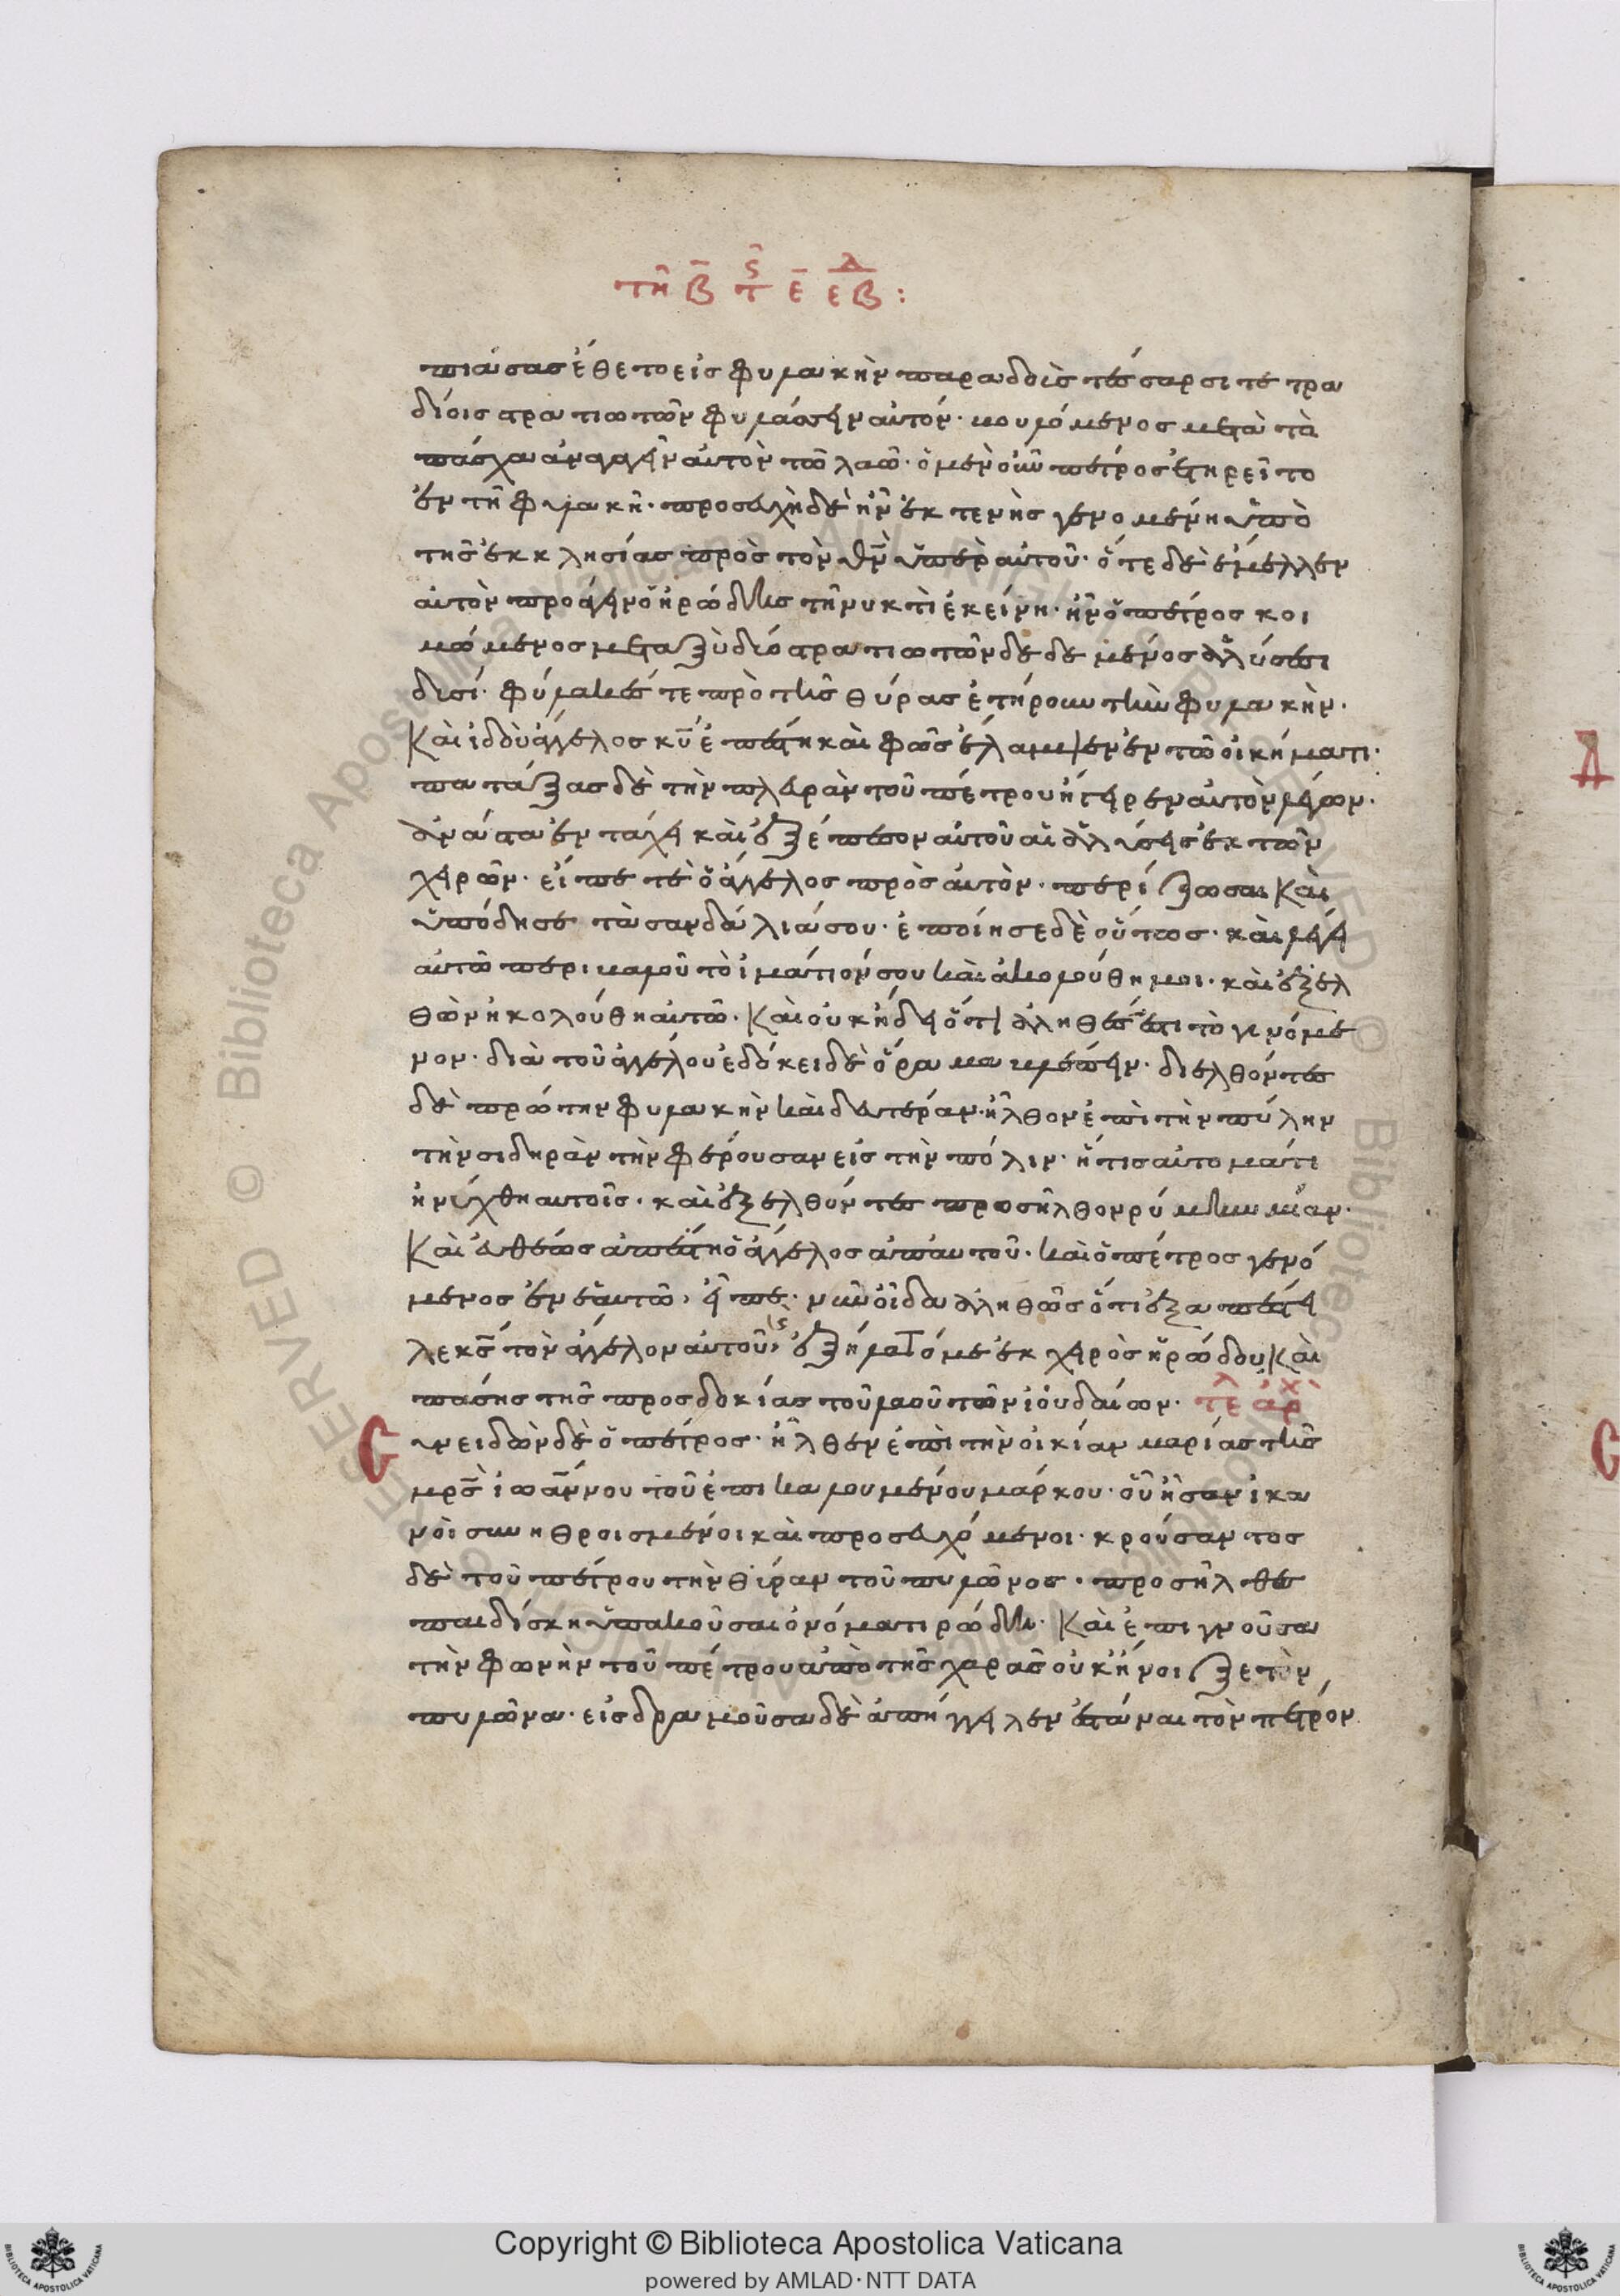 τῆ β̄ τ ϛ̑ ε̄ ε̄β̄ λ :
πιάσας ἔθετο εἰς φυλακὴν παραδοὺς τέσσαρσι τετρα
δίοις στρατιωτῶν φυλάσσειν αὐτόν· βουλόμενος μετὰ τὸ
πάσχα ἀναγαγεῖν αὐτὸν τῶ λαῶ· ὁ μὲν οὖν πέτρος ἐτηρεῖτο
ἐν τῆ φυλακῆ· προσευχὴ δὲ ἦν ἐκτενὴς γενομένη ὑπὸ
τῆς ἐκκλησίας πρὸς τὸν θν̄ ὑπὲρ αὐτοῦ· ὅτε δὲ ἔμελλεν
αὐτὸν προάγειν ὁ ἡρώδης τῆ νυκτὶ ἐκείνη· ἦν ὁ πέτρος κοι
μώμενος μεταξὺ δύο στρατιωτῶν δεδεμένος ἁλύσεσι
δυσί· φύλακές τε πρὸ τῆς θύρας ἐτήρουν τὴν φυλακήν·
Καὶ ἰδοὺ ἄγγελος κῡ ἐπέστη καὶ φῶς ἔλαμψεν ἐν τῶ οἰκήματι·
πατάξας δὲ τὴν πλευρὰν τοῦ πέτρου ἤγειρεν αὐτὸν λέγων·
ἀνάστα ἐν τάχει καὶ ἐξέπεσον αὐτοῦ αἱ ἁλύσεις ἐκ τῶν
χειρῶν· εἶπέ τε ὁ ἄγγελος πρὸς αὐτὸν· περίζωσαι Καὶ
ὑπόδησε τὰ σανδάλιά σου· ἐποίησε δὲ οὕτως· καὶ λέγει
αὐτῶ περιβαλοῦ τὸ ἱμάτιόν σου καὶ ἀκολούθη μοι· καὶ ἐξελ
θὼν ἠκολούθη αὐτῶ· Καὶ οὐκ ἤδει ὅτι ἀληθές ἐστι τὸ γινόμε
νον· διὰ τοῦ ἀγγέλου ἐδόκει δὲ ὅραμα βλέπειν· διελθόντες
δὲ πρώτην φυλακὴν καὶ δευτέραν· ἦλθον ἐπὶ τὴν πύλην
τὴν σιδηρὰν τὴν φέρουσαν εἰς τὴν πόλιν· ἥτις αὐτομάτι
ἠνύχθη αυτοῖς· καὶ ἐξελθόντες προσῆλθον ρύμην μίαν·
Καὶ εὐθέως ἀπέστη ὁ ἄγγελος ἀπ αυτοῦ· καὶ ὁ πέτρος γενό
μενος ἐν ἑαυτῶ, εἶπε· νῦν οἶδα ἀληθῶς ὅτι ἐξαπέστει
λε κς̄ τὸν ἄγγελον αὐτοῦ, ϛ ἐξήλατό με ἐκ χειρὸς ἡρώδου Καὶ
πάσης τῆς προσδοκίας τοῦ λαοῦ τῶν ἰουδαίων· τελ ἀρχ
Συνειδὼν δὲ ὁ πέτρος· ἦλθεν ἐπὶ τὴν οἰκίαν μαρίας τῆς
μρς̄ ἰωάννου τοῦ ἐπικαλουμένου μάρκου· οὗ ἦσαν ἱκα
νοὶ συνηθροισμένοι καὶ προσευχόμενοι· κρούσαντος
δὲ τοῦ πέτρου τὴν θύραν τοῦ πυλῶνος· προσῆλθε
παιδίσκη ὑπακοῦσαι ὀνόματι ρώδη· Καὶ ἐπιγνοῦσα
τὴν φωνὴν τοῦ πέτρου ἀπὸ τῆς χαρᾶς οὐκ ἤνοιξε τὸν
πυλῶνα· εἰσδραμοῦσα δὲ ἀπήγγειλεν ἑστάναι τὸν πέτρον
Copyright © Biblioteca Apostolica Vaticana
powered by AMLAD·NTT DATA